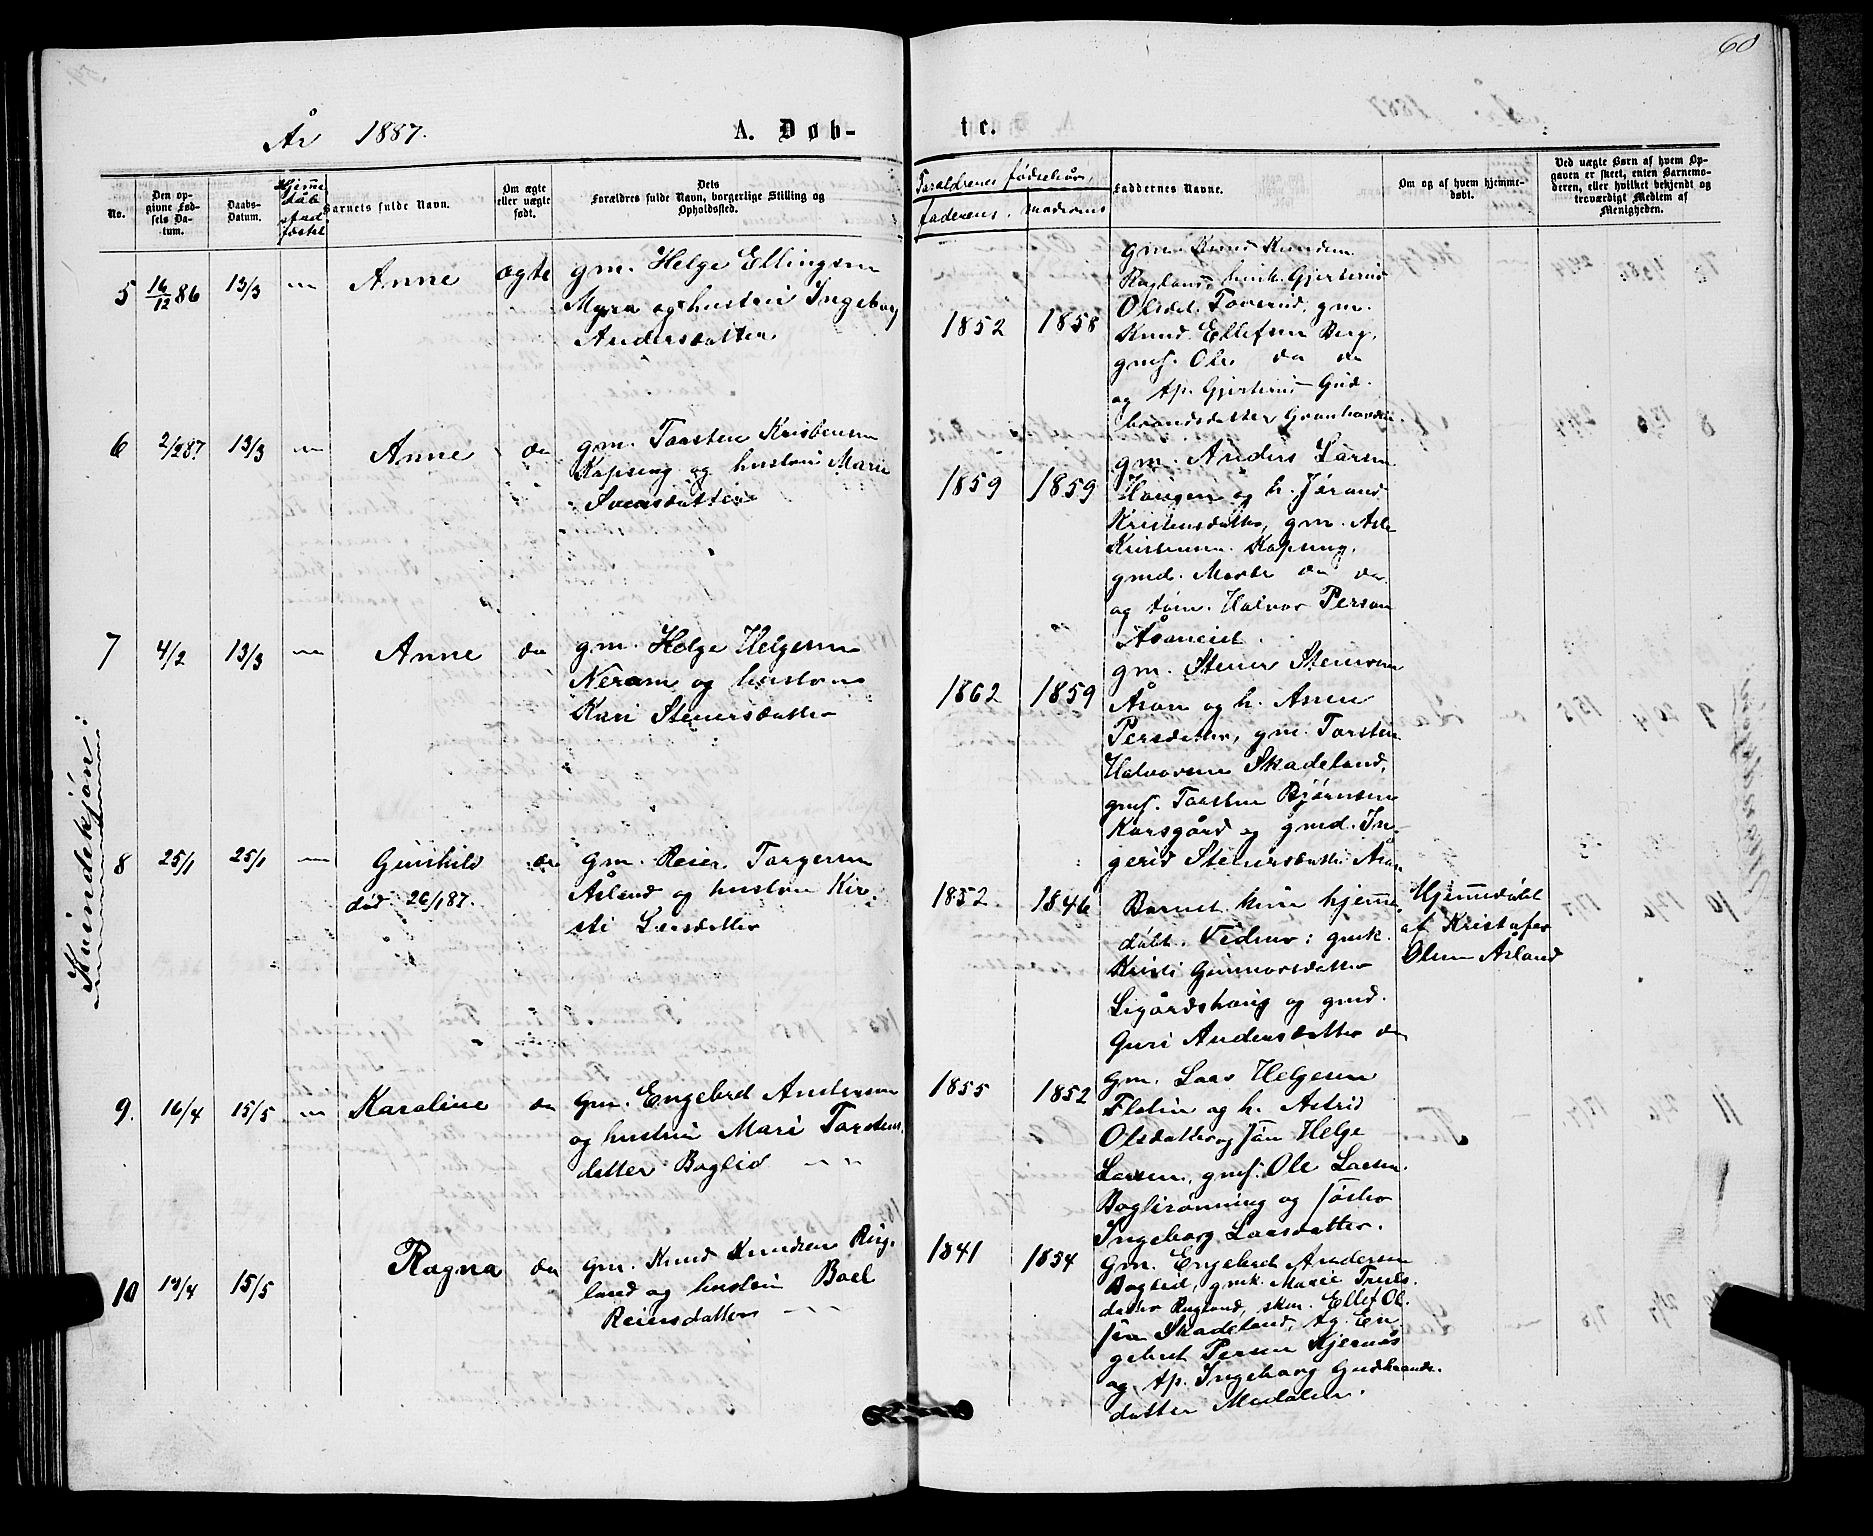 60
År 1887.
A. Døb-
te.
No.
Den op-
givne Fød-
sels Da-
tum.
Daabs-
Datum.
Barnets fulde Navn.
Om ægte
eller uægte
født.
Dets
Forældres fulde Navn, borgerlige Stilling og
Opholdssted.
Forældrenes fødselsår,
faderens. moderens
Faddernes Navne.
Om og af hvem hjemme-
døbt.
Ved uægte Børn af hvem Op-
gaven er skeet, enten Barnemo-
deren, eller hvilket bekjendt og
troværdigt Medlem af
Menigheden.
Kvindekjön:
5 16/12 86 13/3 — Anne ægte
gm. Helge Ellingsen
Myra og hustru Ingeborg
Andersdatter
1852 1858
gm. Knud Knudsen
Olsdat. Toverud, gm.
Knud Ellefsen Berg,
gmf. Ole do do
og tp. Gjertrud Gud-
brandsdatter
6 2/2 87 13/3 — Anne do
gm. Torsten Kristensen
Kapseng og hustru Marie
Svensdatter
1859 1859
gm. Anders Larsen
Haugen og h. Jörand
Kristensdatter, gm. Asle
Kristensen Kapseng,
gmd. Marte do do
og tårn. Halvor Persen
Åsaneiet.
7 4/2 13/3 — Anne do
gm. Helge Helgesen
Neråsen og hustru
Kari Steinersdatter
1862 1859
gm. Steiner Steinersen
Åsan og h. Anne
Persdatter, gm. Torsten
Halvorsen Skadeland,
gmf. Torsten Bjørnsen
Karsgård og gmd. In-
gerid Steinersdatter Åsan
8 25/1 25/1 — Gunhild do
död 26/1 87.
gm. Reier Torgersen
Åsland og hustru Kir-
sti Larsdatter
1852 1846
Barnet kun hjemme-
döbt. Vidner: gmk.
Kristi Gunnarsdatter
Ligårdshaug og gmd.
Guri Andersdatter do
Hjemmedöbt
af Kristofer
Olsen Åsland
9. 16/4 15/5 — Karoline do
gm. Engebred Andersen
og hustru Mari Torstens-
datter Boglid
1855 1852
gm. Lars Helgesen
Flatin og h. Astrid
Olsdatter og sön Helge
Larsen, gmf. Ole Larsen
Boglirönning og söster
Ingeborg Larsdatter.
10 14/4 15/5 Ragna do
gm. Knud Knudsen Rug-
land og hustru Boel
Reiersdatter
1841 1854
gm. Engebred Andersen
Boglid, gmk. Marie Truls-
datter Rugland, skm. Ellef Ol-
sen Skadeland, tg. En-
gebret Persen Kjernås
og tp. Ingeborg Gudbrands-
datter Medalen.